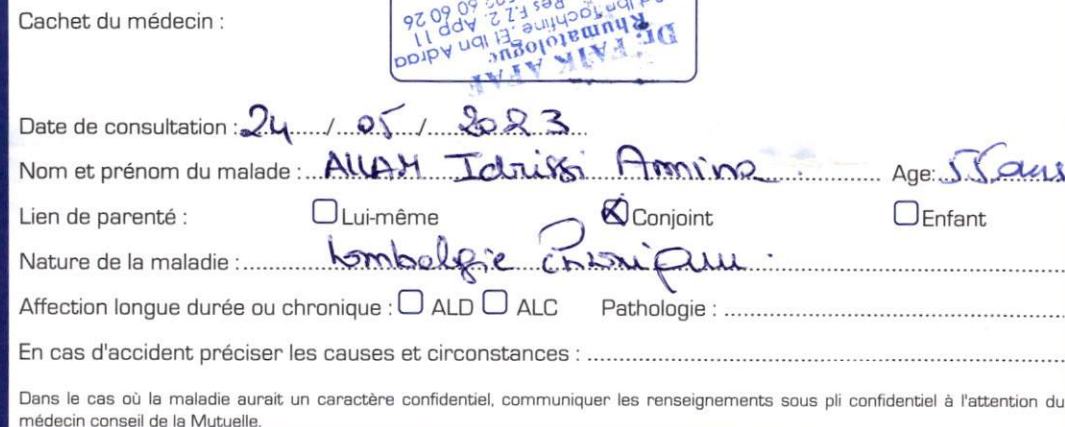 Cachet du médecin :
Dr. FAIK AFAF
Rhumatologue
Tachfine. El Ibn Adraa
Res F.Z.Z. 2. App 11
60 60 26
Date de consultation : 24 / 05 / 2023
Nom et prénom du malade : ALLAM Idrissi Amina Age: 55 ans
Lien de parenté : Lui-même Conjoint Enfant
Nature de la maladie : Lombalgie chronique
Affection longue durée ou chronique : ALD ALC Pathologie :
En cas d'accident préciser les causes et circonstances :
Dans le cas où la maladie aurait un caractère confidentiel, communiquer les renseignements sous pli confidentiel à l'attention du
médecin conseil de la Mutuelle.